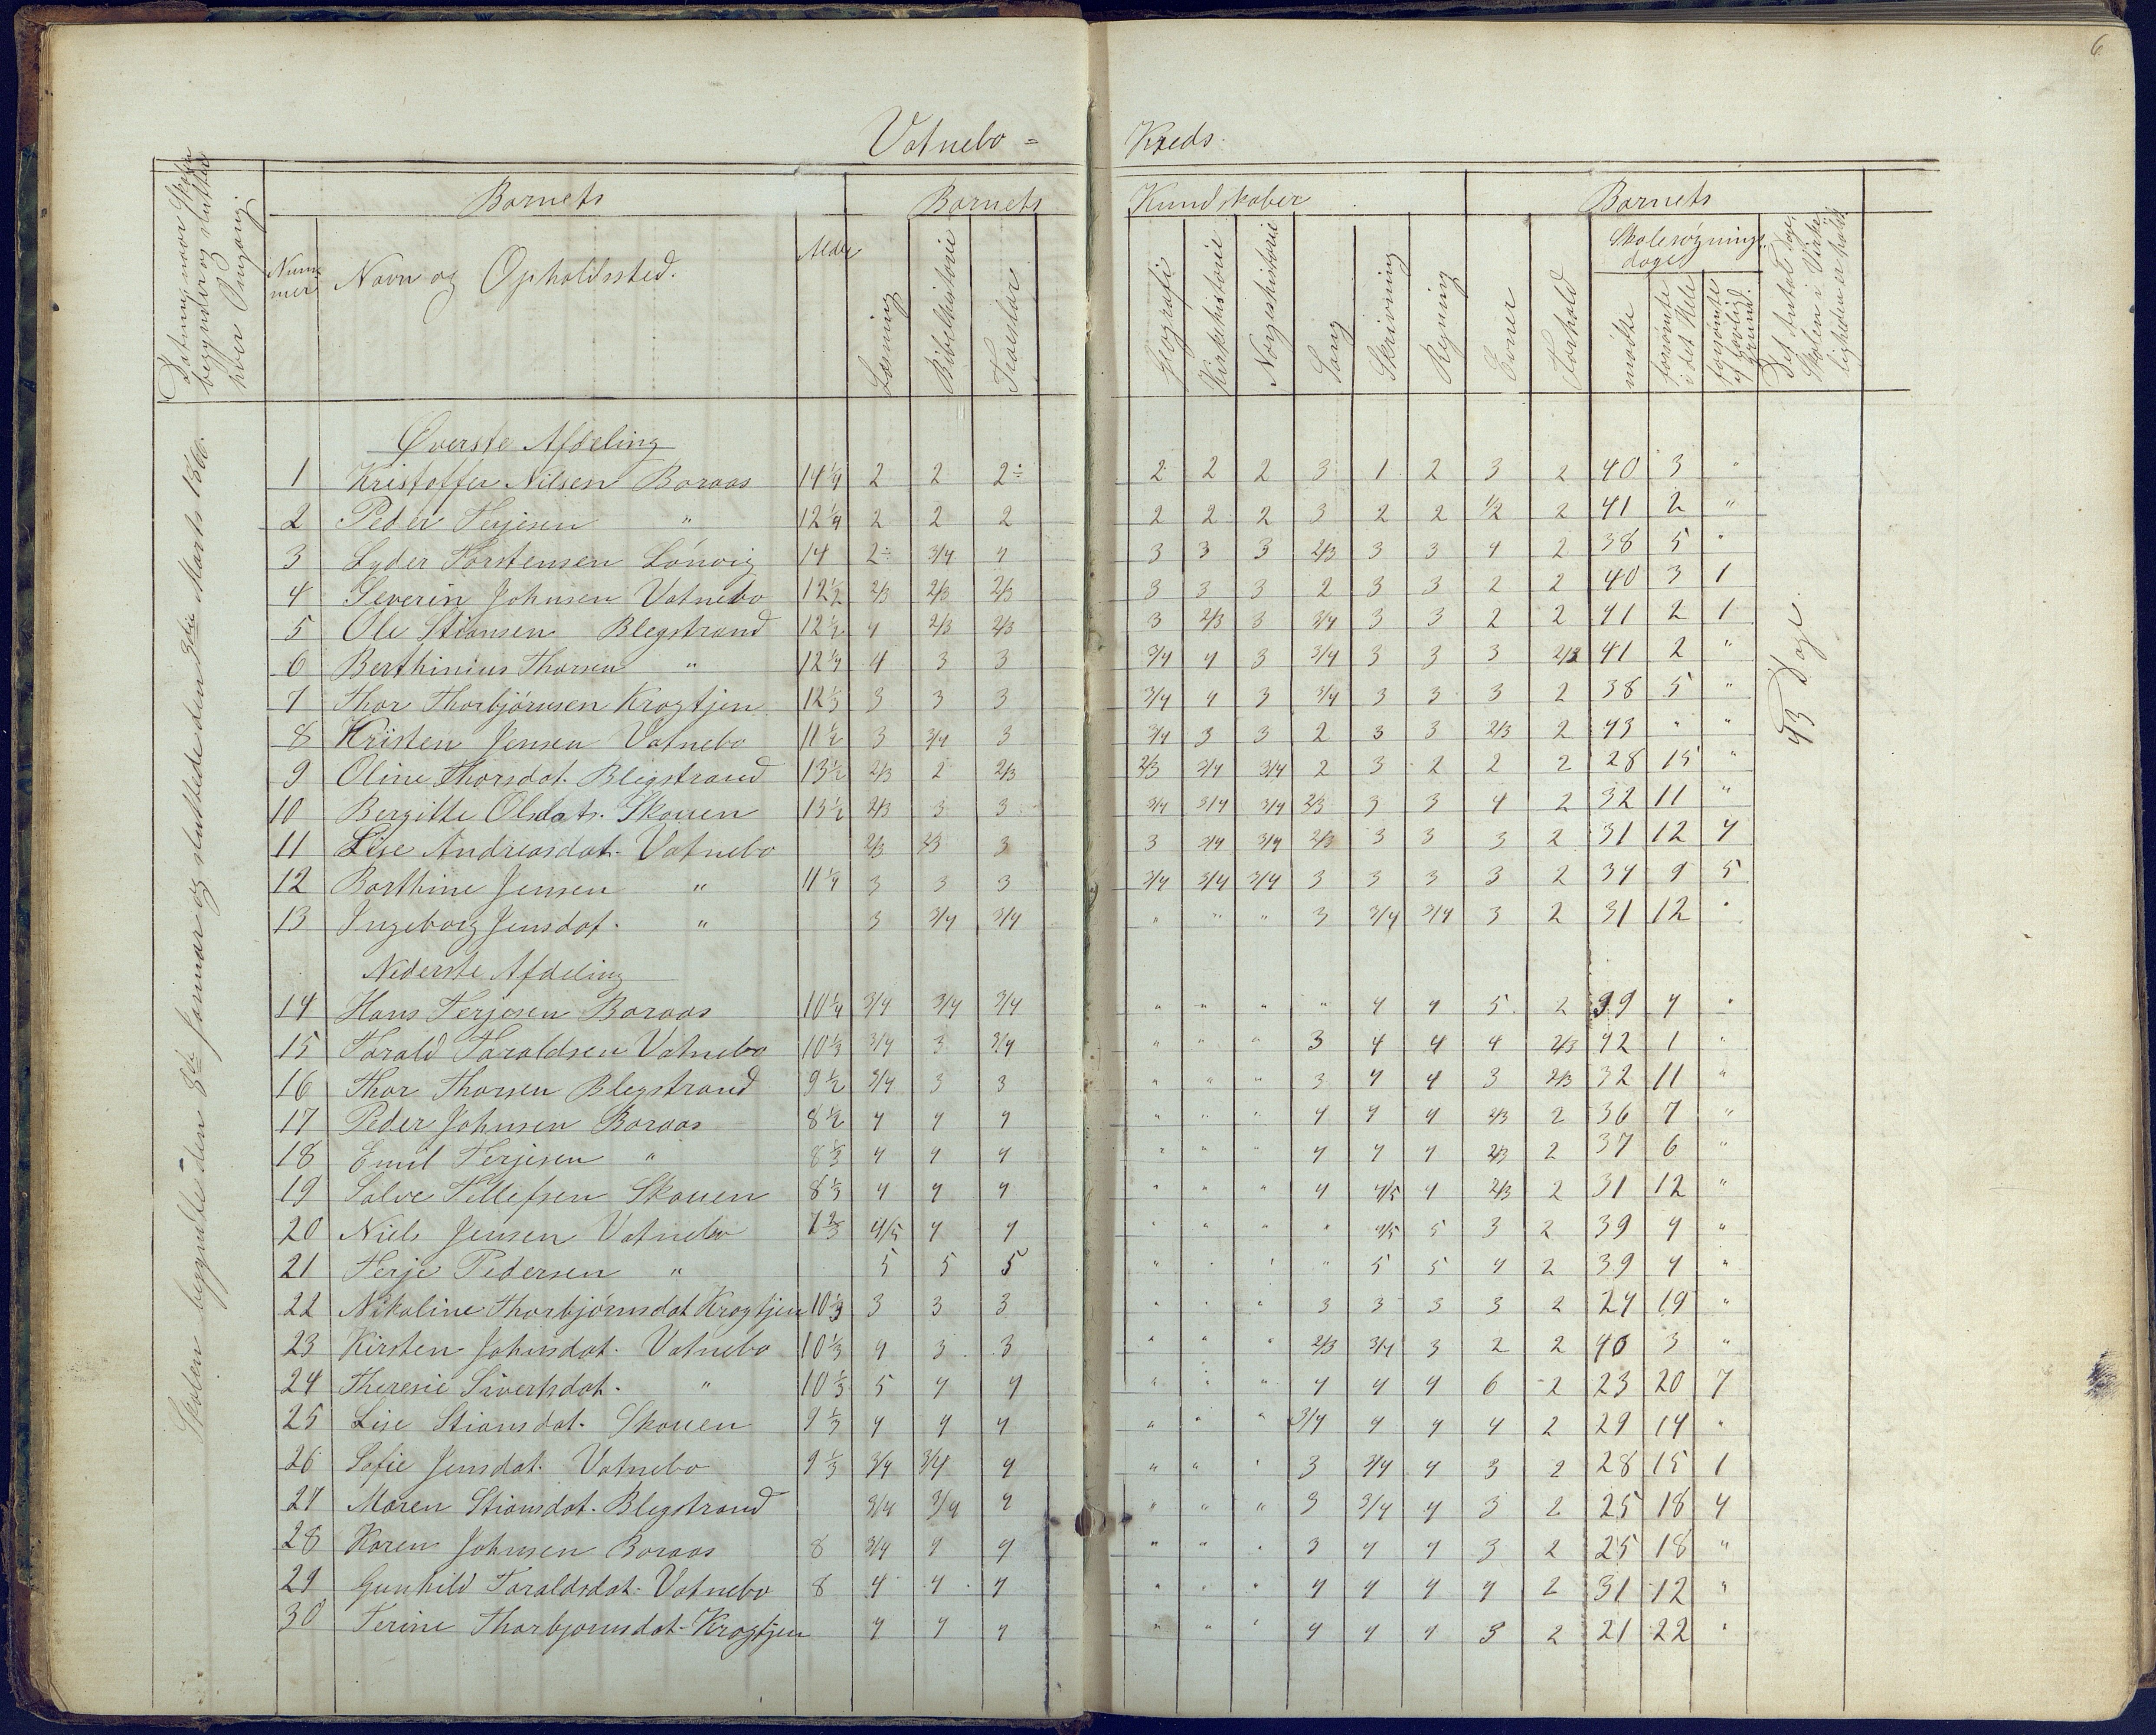 6
Vatnebo = Kreds.
Datum, naar Skolen begynder og slutter hver Omgang.
Barnets
Barnets Kundskaber
Barnets
Num-mer
Navn og Opholdssted.
Alder
Læsning
Bibelhistorie
Troeslær
Geografi
Kirkehistorie
Norgeshistorie
Sang
Skrivning
Regning
Evner
Forhold
Skolesøgnings-dage
mødte
forsømte i det Hele
forsømte af lovlig Grund.
Det Antal Dage, Skolen i Virke-ligheden er holdt
Skolen begyndte den 8de Januar og sluttede den 3die Marts 1866.
43 Dage.
Øverste Afdeling
1 Kristoffer Nilsen Boraas 14 1/4 2 2 2÷ 2 2 2 3 1 2 3 2 40 3 "
2 Peder Terjesen " 12 1/4 2 2 2 2 2 2 3 2 2 1/2 2 41 2 "
3 Lyder Torstensen Lønvig 14 2÷ 3/4 4 3 3 3 2/3 3 3 4 2 38 5 "
4 Severin Johnsen Vatnebo 12 1/2 2/3 2/3 2/3 3 3 3 2 3 3 2 2 40 3 1
5 Ole Stiansen Blegstrand 12 1/2 4 2/3 2/3 3 2/3 3 3/4 3 3 2 2 41 2 1
6 Berthinius Thorsen " 12 1/4 4 3 3 3/4 4 3 3/4 3 3 3 2/3 41 2 "
7 Thor Thorbjørnsen Krogtjen 12 1/3 3 3 3 3/4 4 3 3/4 3 3 3 2 38 5 "
8 Kristen Jensen Vatnebo 11 1/2 3 3/4 3 3/4 3 3 2 3 3 2/3 2 43 " "
9 Oline Thorsdat. Blegstrand 13 1/2 2/3 2 2/3 2/3 3/4 3/4 2 3 2 2 2 28 15 "
10 Bergitte Olsdatr. Skouen 13 1/2 2/3 3 3 3/4 3/4 3/4 2/3 3 3 4 2 32 11 "
11 Lise Andreasdat. Vatnebo 2/3 2/3 3 3 3/4 3/4 2/3 3 3 3 2 31 12 4
12 Barthine Jensen " 11 1/4 3 3 3 3/4 3/4 3/4 3 3 3 3 2 34 9 5
13 Ingeborg Jensdat. " 3 3/4 3/4 " " " 3 3/4 3/4 3 2 31 12 "
Nederste Afdeling
14 Hans Terjesen Boraas 10 1/4 3/4 3/4 3/4 " " " " 4 4 5 2 39 4 "
15 Tarald Taraldsen Vatnebo 10 1/3 3/4 3 3/4 " " " 3 4 4 4 2/3 42 1 "
16 Thor Thorsen Blegstrand 9 1/2 3/4 3 3 " " " 3 4 4 3 2/3 32 11 "
17 Peder Johnsen Boraas 8 1/2 4 4 4 " " " 4 4 4 2/3 2 36 7 "
18 Emil Terjesen " 8 1/3 4 4 4 " " " 4 4 4 2/3 2 37 6 "
19 Salve Tellefsen Skouen 8 1/3 4 4 4 " " " 4 4/5 4 2/3 2 31 12 "
20 Niels Jensen Vatnebo 7 2/3 4/5 4 4 " " " " 4/5 5 3 2 39 4 "
21 Terje Pedersen " 5 5 5 " " " " 5 5 4 2 39 4 "
22 Nikoline Thorbjørnsdat Krogtjen 10 2/3 3 3 3 " " " 3 3 3 3 2 24 19 "
23 Kirsten Johnsdat. Vatnebo 10 1/3 4 3 3 " " " 2/3 3/4 3 2 2 40 3 "
24 Theresie Sivertsdat. " 10 1/3 5 4 4 " " " 4 4 4 6 2 23 20 7
25 Lise Stiansdat. Skouen 9 1/3 4 4 4 " " " 3/4 4 4 4 2 29 14 "
26 Sofie Jensdat. Vatnebo 9 1/3 3/4 3/4 4 " " " 3 3/4 4 3 2 28 15 1
27 Maren Stiansdat. Blegstrand 3/4 3/4 4 " " " 3 3/4 4 3 2 25 18 4
28 Karen Johnsen Boraas 8 3/4 4 4 " " " 3 4 4 3 2 25 18 "
29 Gunhild Taraldsdat. Vatnebo 8 4 4 4 " " " 4 4 4 4 2 31 12 "
30 Terine Thorbjørnsdat. Krogtjen 4 4 4 " " " 4 4 4 3 2 21 22 "